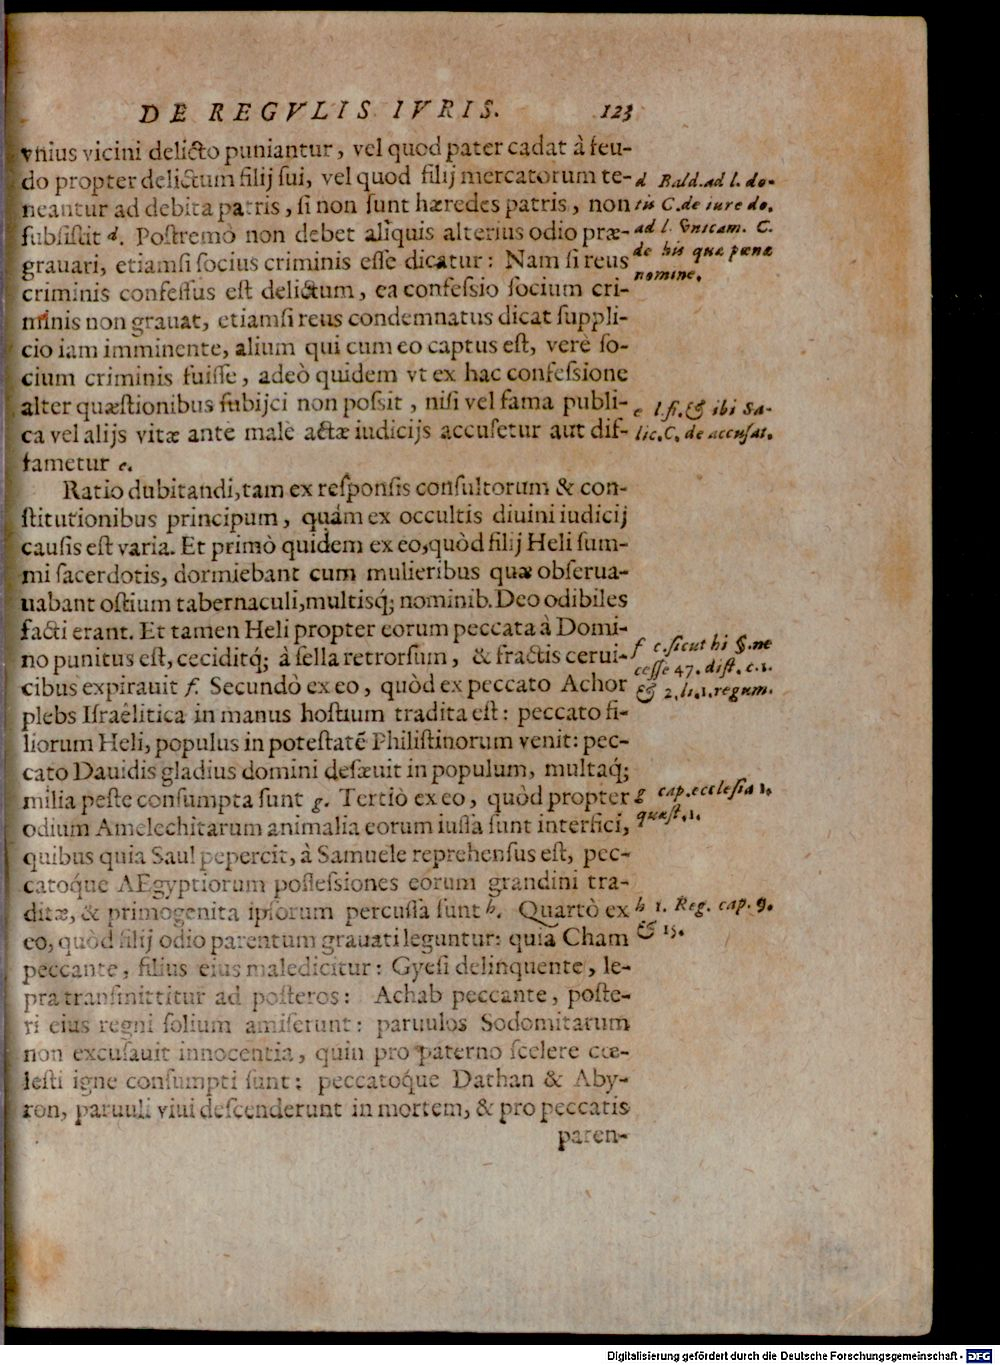 DE REGVLIS IVRIS. 123
vnius vicini delicto puniantur, vel quod pater cadat à feu-
do propter delictum filij sui, vel quod filij mercatorum te-
neantur ad debita patris, si non sunt hæredes patris, non
subsistit d. Postremò non debet aliquis alterius odio præ-
grauari, etiamsi socius criminis esse dicatur: Nam si reus
criminis confessus est delictum, ea confessio socium cri-
minis non grauat, etiamsi reus condemnatus dicat suppli-
cio iam imminente, alium qui cum eo captus est, verè so-
cium criminis fuisse, adeò quidem vt ex hac confessione
alter quæstionibus subijci non possit, nisi vel fama publi-
ca vel alijs vitæ ante male actæ iudicijs accusetur aut dif-
fametur e.
Ratio dubitandi, tam ex responsis consultorum & con-
stitutionibus principum, quám ex occultis diuini iudicij
causis est varia. Et primò quidem ex eo, quòd filij Heli sum-
mi sacerdotis, dormiebant cum mulieribus quæ obserua-
uabant ostium tabernaculi, multisq́; nominib. Deo odibiles
facti erant. Et tamen Heli propter eorum peccata à Domi-
no punitus est, ceciditq́; à sella retrorsum, & fractis cerui-
cibus expirauit f. Secundò ex eo, quòd ex peccato Achor
plebs Israëlitica in manus hostium tradita est: peccato fi-
liorum Heli, populus in potestatẽ Philistinorum venit: pec-
cato Dauidis gladius domini desæuit in populum, multaq́;
milia peste consumpta sunt g. Tertiò ex eo, quòd propter
odium Amelechitarum animalia eorum iussa sunt interfici,
quibus quia Saul pepercit, à Samuele reprehensus est, pec-
catoq́ue AEgyptiorum possessiones eorum grandini tra-
ditæ, & primogenita ipsorum percussa sunt h. Quartò ex
eo, quòd filij odio parentum grauati leguntur: quia Cham
peccante, filius eius maledicitur: Gyesi delinquente, le-
pra transmittitur ad posteros: Achab peccante, poste-
ri eius regni solium amiserunt: paruulos Sodomitarum
non excusauit innocentia, quin pro paterno scelere cœ-
lesti igne consumpti sunt: peccatoq́ue Dathan & Aby-
ron, paruuli viui descenderunt in mortem, & pro peccatis
paren-
d Bald. ad l. do-
tis C. de iure do.
ad l. vnicam. C.
de his quæ pœnæ
nomine.
e l. fi. & ibi Sa-
lic. C. de accusat.
f c. sicut hi §. ne
cesse 47. dist. c. 1.
& 2. li. 1. regum.
g cap. ecclesia 1.
quæst. 1.
h 1. Reg. cap. 9.
& 15.
Digitalisierung gefördert durch die Deutsche Forschungsgemeinschaft - DFG